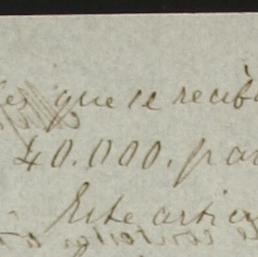 que se recib
40.000. par
Este artic